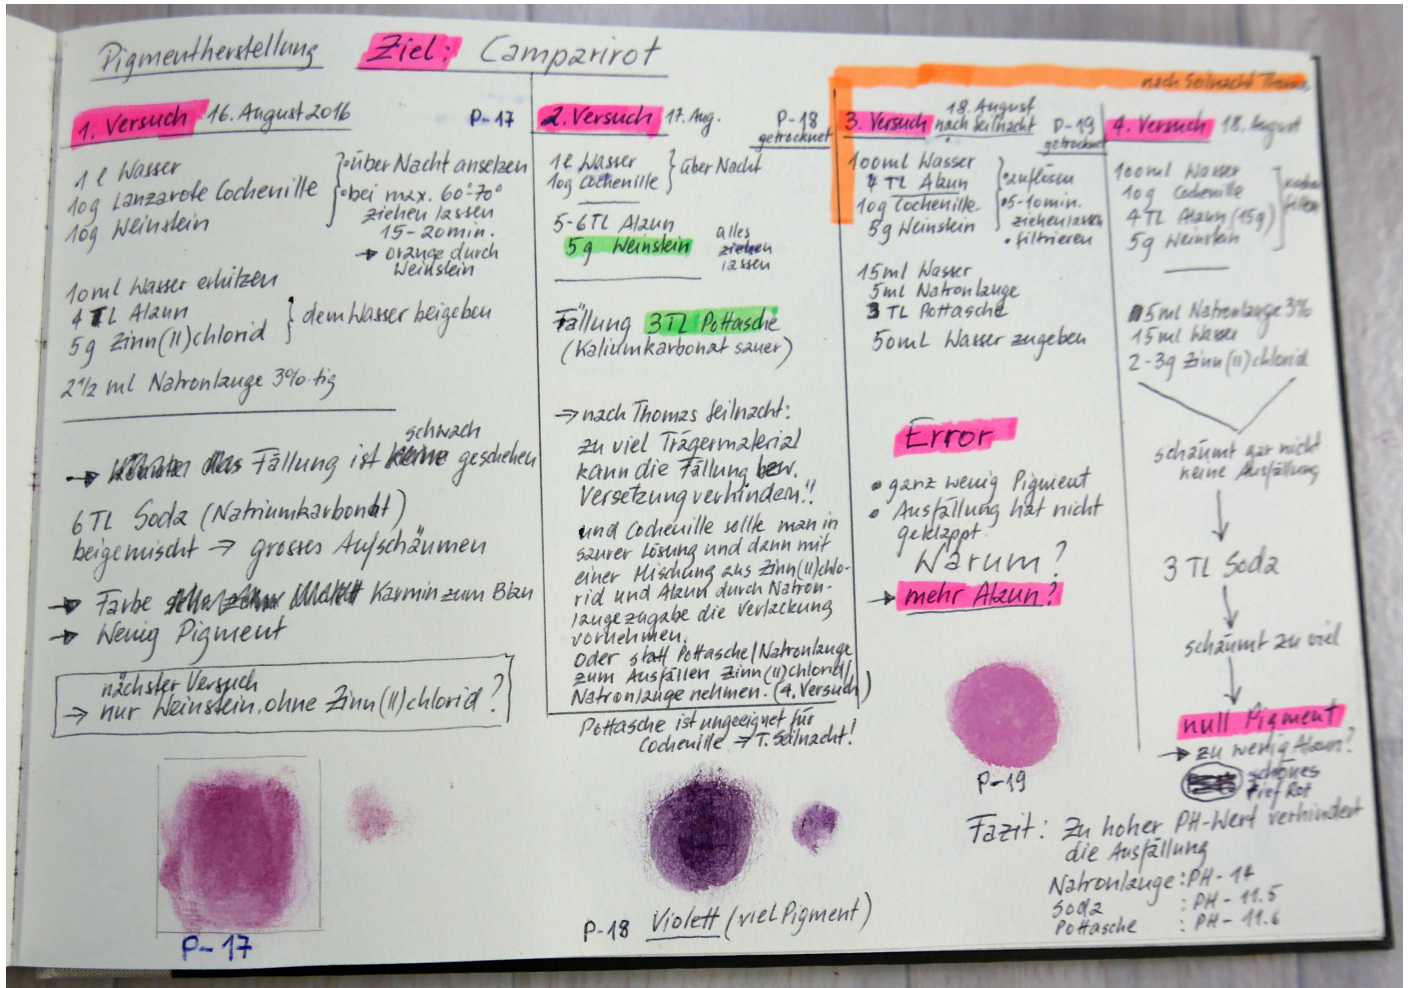 Pigmentherstellung Ziel: Camparirot
nach Seilnacht Thomas
1. Versuch 16. August 2016 P-17
1 l Wasser
10g Lanzarote Cochenille
10g Weinstein
• über Nacht ansetzen
• bei max. 60°-70°
ziehen lassen
15-20min.
→ orange durch
Weinstein
10ml Wasser erhitzen
4 TL Alaun
5g Zinn(II)chlorid
dem Wasser beigeben
2 1/2 ml Natronlauge 3%-tig
→ das Fällung ist schwach geschehen
6 TL Soda (Natriumkarbonat)
beigemischt → grosses Aufschäumen
→ Farbe Karmin zum Blau
→ Wenig Pigment
nächster Versuch
→ nur Weinstein, ohne Zinn(II)chlorid?
P-17
2. Versuch 17. Aug. P-18
getrocknet
1l Wasser
10g Cochenille
über Nacht
5-6TL Alaun
5g Weinstein
alles
ziehen
lassen
Fällung 3TL Pottasche
(Kaliumkarbonat sauer)
→ nach Thomas Seilnacht:
zu viel Trägermaterial
kann die Fällung bzw.
Versetzung verhindern!!
und Cochenille sollte man in
saurer Lösung und dann mit
einer Mischung aus Zinn(II)chlo-
rid und Alaun durch Natron-
laugezugabe die Verlackung
vornehmen.
Oder statt Pottasche/Natronlauge
zum Ausfällen Zinn(II)chlorid/
Natronlauge nehmen. (4. Versuch)
Pottasche ist ungeeignet für
Cochenille → T. Seilnacht!
P-18 Violett (viel Pigment)
3. Versuch 18. August
nach Seilnacht P-19
getrocknet
100ml Wasser
4 TL Alaun
10g Cochenille
5g Weinstein
• auflösen
• 5-10min.
ziehen lassen
• filtrieren
15ml Wasser
5ml Natronlauge
3 TL Pottasche
50ml Wasser zugeben
Error
• ganz wenig Pigment
• Ausfällung hat nicht
geklappt.
Warum?
→ mehr Alaun?
P-19
4. Versuch 18. August
100ml Wasser
10g Cochenille
4TL Alaun (15g)
5g Weinstein
5ml Natronlauge 3%
15ml Wasser
2-3g Zinn(II)chlorid
schäumt gar nicht
keine Ausfällung
3 TL Soda
schäumt zu viel
null Pigment
→ zu wenig Alaun?
schönes
Tief Rot
Fazit: Zu hoher PH-Wert verhindert
die Ausfällung
Natronlauge: PH - 14
Soda : PH - 11.5
Pottasche : PH - 11.6